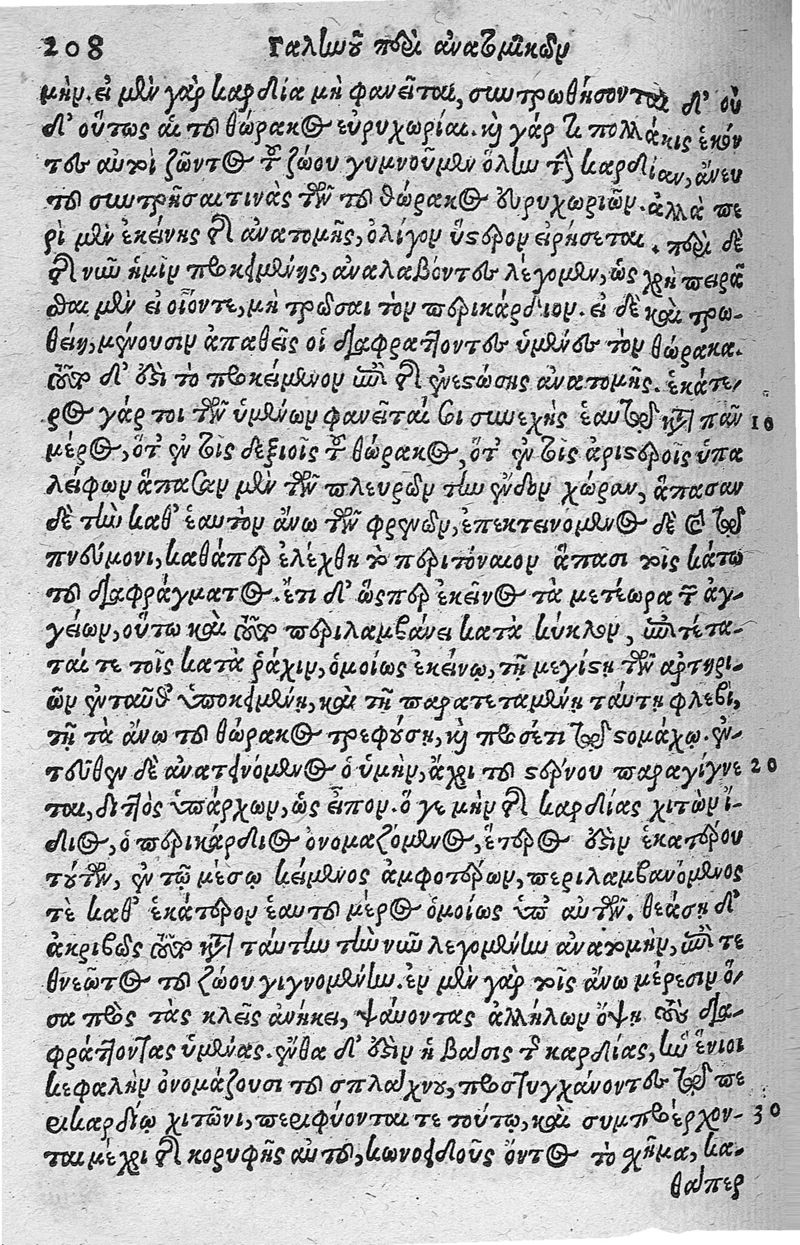 208 Γαληνοῦ περὶ ἀνατομικῶν
μήν. εἰ μὲν γὰρ καρδία μὴ φανεῖται, συντρωθήσονται δ' οὐ
δ' οὕτως αἱ τοῦ θώρακος εὐρυχωρίαι. καὶ γάρ τι πολλάκις ἑκόν
τες αὐτοὶ ζῶντος τοῦ ζώου γυμνοῦμεν ὅλην τὴν καρδίαν, ἄνευ
τοῦ συντρῆσαι τινὰς τῶν τοῦ θώρακος εὐρυχωριῶν. ἀλλὰ πε
ρὶ μὲν ἐκείνης τῆς ἀνατομῆς, ὀλίγον ὕστερον εἰρήσεται. περὶ δὲ
τῆς νῦν ἡμῖν προκειμένης, ἀναλαβόντες λέγομεν, ὡς χρὴ πειρᾶ
σθαι μὲν εἰ οἷόντε, μὴ τρῶσαι τὸν περικάρδιον. εἰ δὲ καὶ τρω-
θείη, μένουσιν ἀπαθεῖς οἱ διαφράττοντες ὑμένες τὸν θώρακα.
τοῦτο δ' ἐστὶ τὸ προκείμενον ἐπὶ τῆς ἐνεστώσης ἀνατομῆς. ἑκάτε-
ρος γάρ τοι τῶν ὑμένων φανεῖταί σοι συνεχὴς ἑαυτῷ κατὰ πᾶν 10
μέρος, ὅτ' ἐν τοῖς δεξιοῖς τοῦ θώρακος, ὅτ' ἐν τοῖς ἀριστεροῖς ὑπα
λείφων ἅπασαν μὲν τῶν πλευρῶν τὴν ἔνδον χώραν, ἅπασαν
δὲ τὴν καθ' ἑαυτὸν ἄνω τῶν φρενῶν, ἐπεκτεινόμενος δὲ καὶ τῷ
πνεύμονι, καθάπερ ἐλέχθη τὸ περιτόναιον ἅπασι τοῖς κάτω
τοῦ διαφράγματος. ἔτι δ' ὥσπερ ἐκεῖνος τὰ μετέωρα τῶν ἀγ-
γείων, οὕτω καὶ οὗτος περιλαμβάνει κατὰ κύκλον, ἐπιτέτα-
ταί τε τοῖς κατὰ ῥάχιν, ὁμοίως ἐκείνῳ, τῇ μεγίστῃ τῶν ἀρτηρι-
ῶν ἐνταῦθ' ὑποκειμένῃ, καὶ τῇ παρατεταμένῃ ταύτῃ φλεβὶ,
τῇ τὰ ἄνω τοῦ θώρακος τρεφούσῃ, καὶ προσέτι τῷ στομάχῳ. ἐν-
τεῦθεν δὲ ἀνατεινόμενος ὁ ὑμὴν, ἄχρι τοῦ στέρνου παραγίγνε 20
ται, διττὸς ὑπάρχων, ὡς εἶπον. ὅ γε μὴν τῆς καρδίας χιτὼν ἴ-
διος, ὁ περικάρδιος ὀνομαζόμενος, ἕτερος ἐστὶν ἑκατέρου
τούτων, ἐν τῷ μέσῳ κείμενος ἀμφοτέρων, περιλαμβανόμενος
τὲ καθ' ἑκάτερον ἑαυτοῦ μέρος ὁμοίως ὑπ' αὐτῶν. θεάσῃ δ'
ἀκριβῶς τοῦτο κατὰ ταύτην τὴν νῦν λεγομένην ἀνατομὴν, ἐπὶ τε
θνεῶτος τοῦ ζώου γιγνομένην. ἐν μὲν γὰρ τοῖς ἄνω μέρεσιν ὅ-
σα πρὸς τὰς κλεῖς ἀνήκει, ψάυοντας ἀλλήλων ὄψῃ τοὺς δια-
φράττοντας ὑμένας. ἔνθα δ' ἐστὶν ἡ βάσις τῆς καρδίας, ἣν ἔνιοι
κεφαλὴν ὀνομάζουσι τοῦ σπλάγχνου, προστυγχάνοντες τῷ πε
ρικαρδίῳ χιτῶνι, περιφύονται τε τούτῳ, καὶ συμπροέρχον- 30
ται μέχρι τῆς κορυφῆς αὐτοῦ, κωνοειδοῦς ὄντος τὸ σχῆμα, κα-
θάπερ